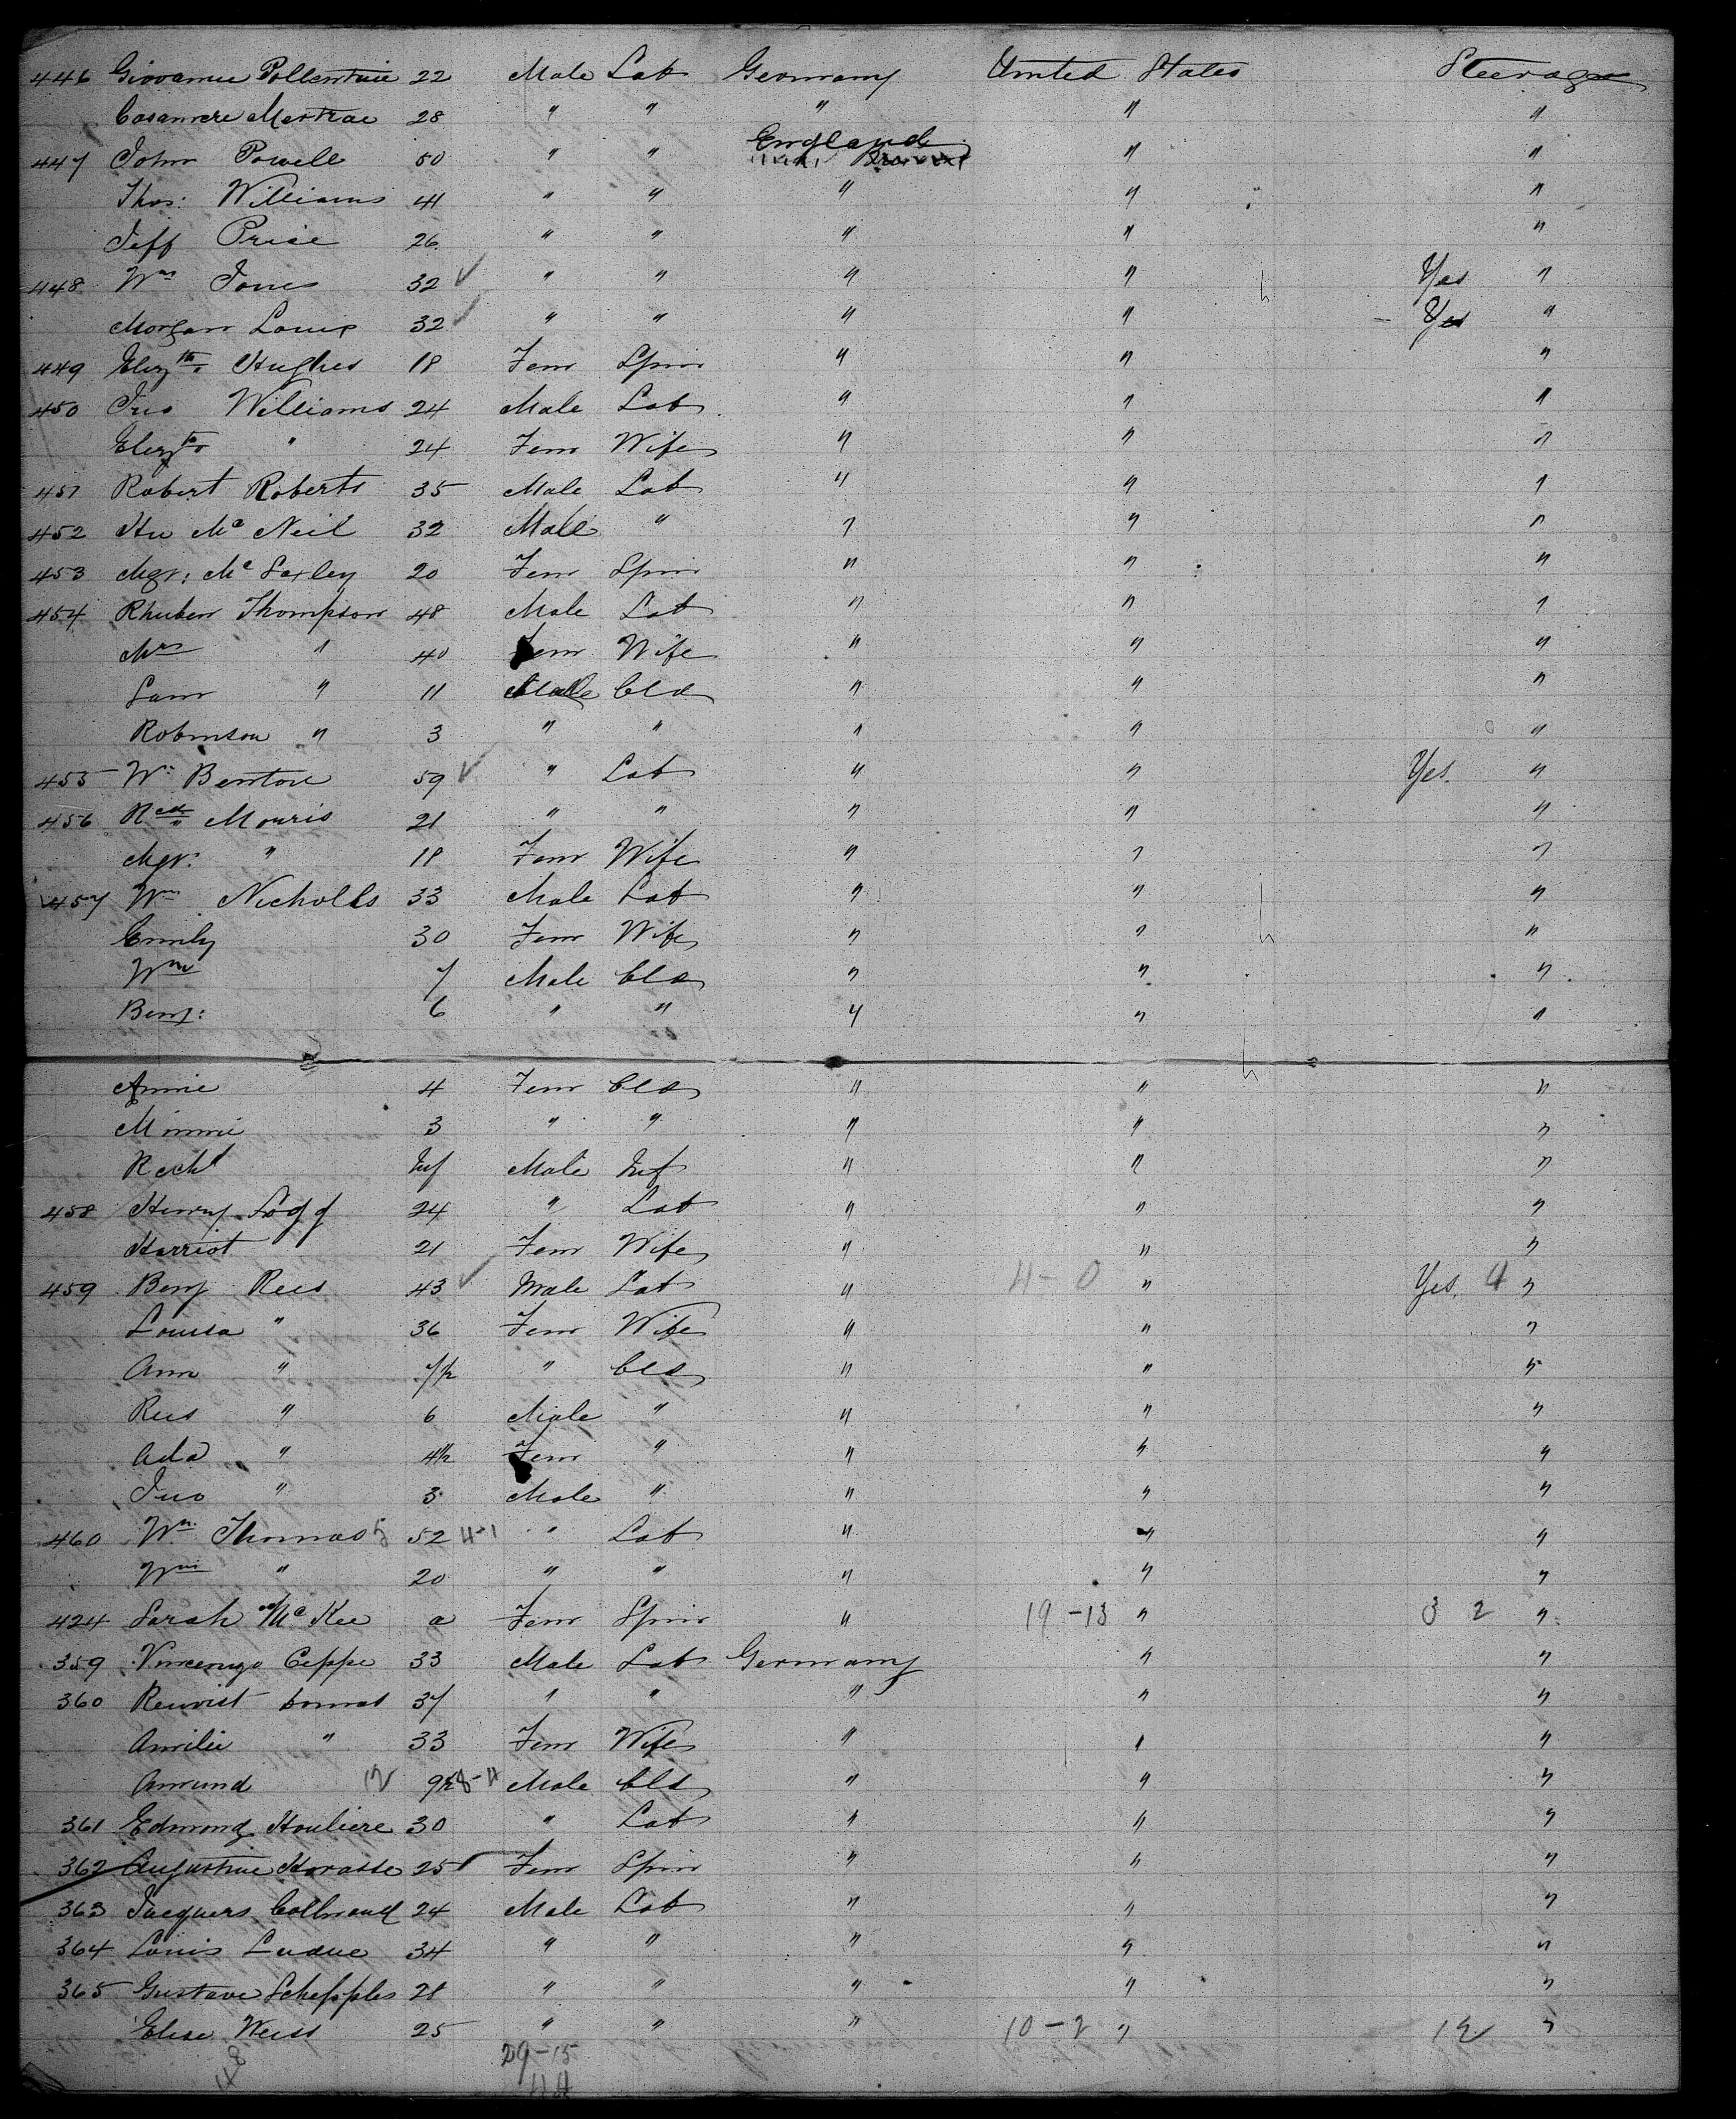 446 Giovanni Pollentrice 22 Male Lab Germany United States Steerage
Casamere Mertrae 28 " " " " "
England
447 John Powell 50 " " " "
Thos: Williams 41 " " " " "
Jeff Price 26 " " " " "
448 Wm Jones 32 ✓ " " " " Yes "
Morgan Louis 32 ✓ " " " " - Yes "
449 Elizth Hughes 18 Fem Spin " " "
450 Jno Williams 24 Male Lab " " "
Elizth " 24 Fem Wife " " "
451 Robert Roberts 35 Male Lab " " "
452 Hu Mc Neil 32 Male " " " "
453 Mgr: Mc Saxley 20 Fem Spin " " "
454 Rhuben Thompson 48 Male Lab " " "
Mrs " 40 Fem Wife " " "
Sam " 11 Male Cld " " "
Robinson " 3 " " " " "
455 Wm Benton 59 ✓ " Lab " " Yes. "
456 Rcd Mouris 21 " " " " "
Mgr: " 18 Fem Wife " " "
457 Wm Nicholls 33 Male Lab " " "
Emily 30 Fem Wife " " "
Wm 7 Male Cld " " "
Benj: 6 " " " " "
Annie 4 Fem Cld " " "
Minnie 3 " " " " "
Rchd Inf Male Inf " " "
458 Henry Logg 24 " Lab " " "
Harriot 21 Fem Wife " " "
459 Benj Rees 43 ✓ Male Lab " 4-0 " Yes. 4 "
Louisa " 36 Fem Wife " " "
Ann " 7½ " Cld " " "
Rees " 6 Male " " " "
Ada " 4½ Fem " " " "
Jno " 3 Male " " " "
460 Wm Thomas 5 52 4-1 " Lab " " "
Wm " 20 " " " " "
424 Sarah Mc Kee a Fem Spin " 19-13 " 3 2 "
359 Vincenzo Ceppe 33 Male Lab Germany " "
360 Reuvist 37 " " " " "
Amilie " 33 Fem Wife " " "
Amund 12 9½ 8-4 Male Cld " " "
361 Edmond Houliere 30 " Lab " " "
362 Augustine Harasse 25 Fem Spin " " "
363 Jacquers Colbraud 24 Male Lab " " "
364 Louis Ludue 34 " " " " "
365 Gustave Schepples 21 " " " " "
Elise Weiss 25 " " " 10-2 " 12 "
48 29-15
44